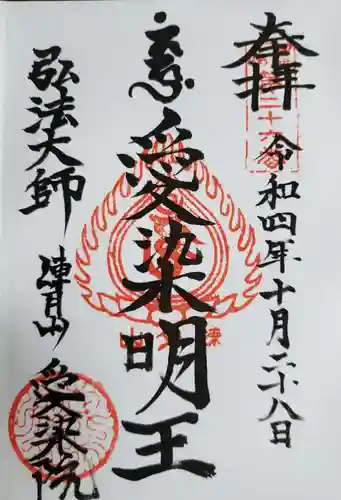 奉拝
令和四年十月二十八日
愛染明王
弘法大師
練月山 愛染院